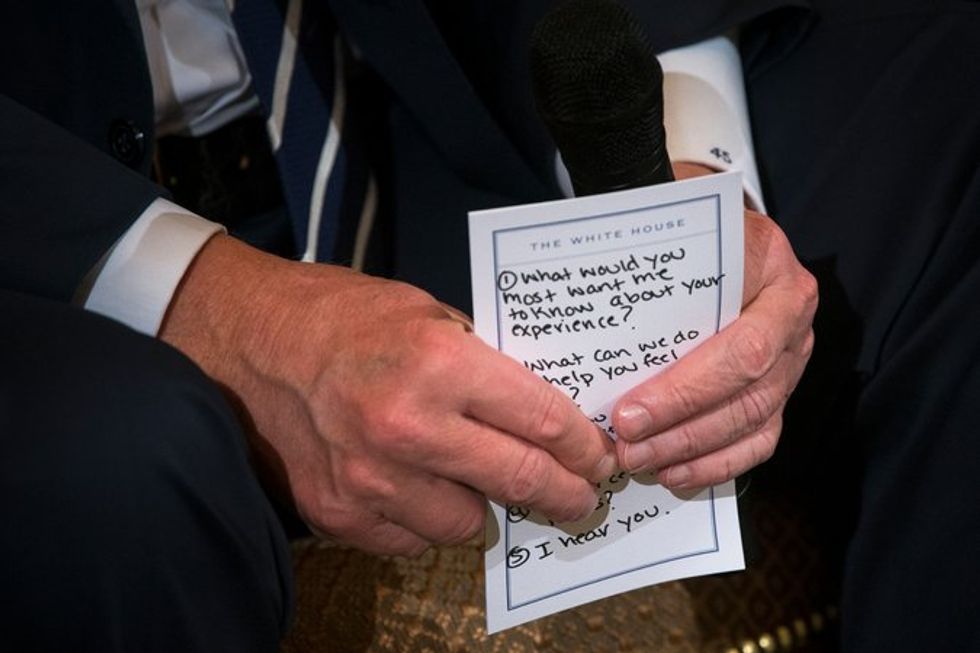 THE WHITE HOUSE
① What would you
most want me
to know about your
experience?
What can we do
help you feel
?
④
?
⑤ I hear you.
45